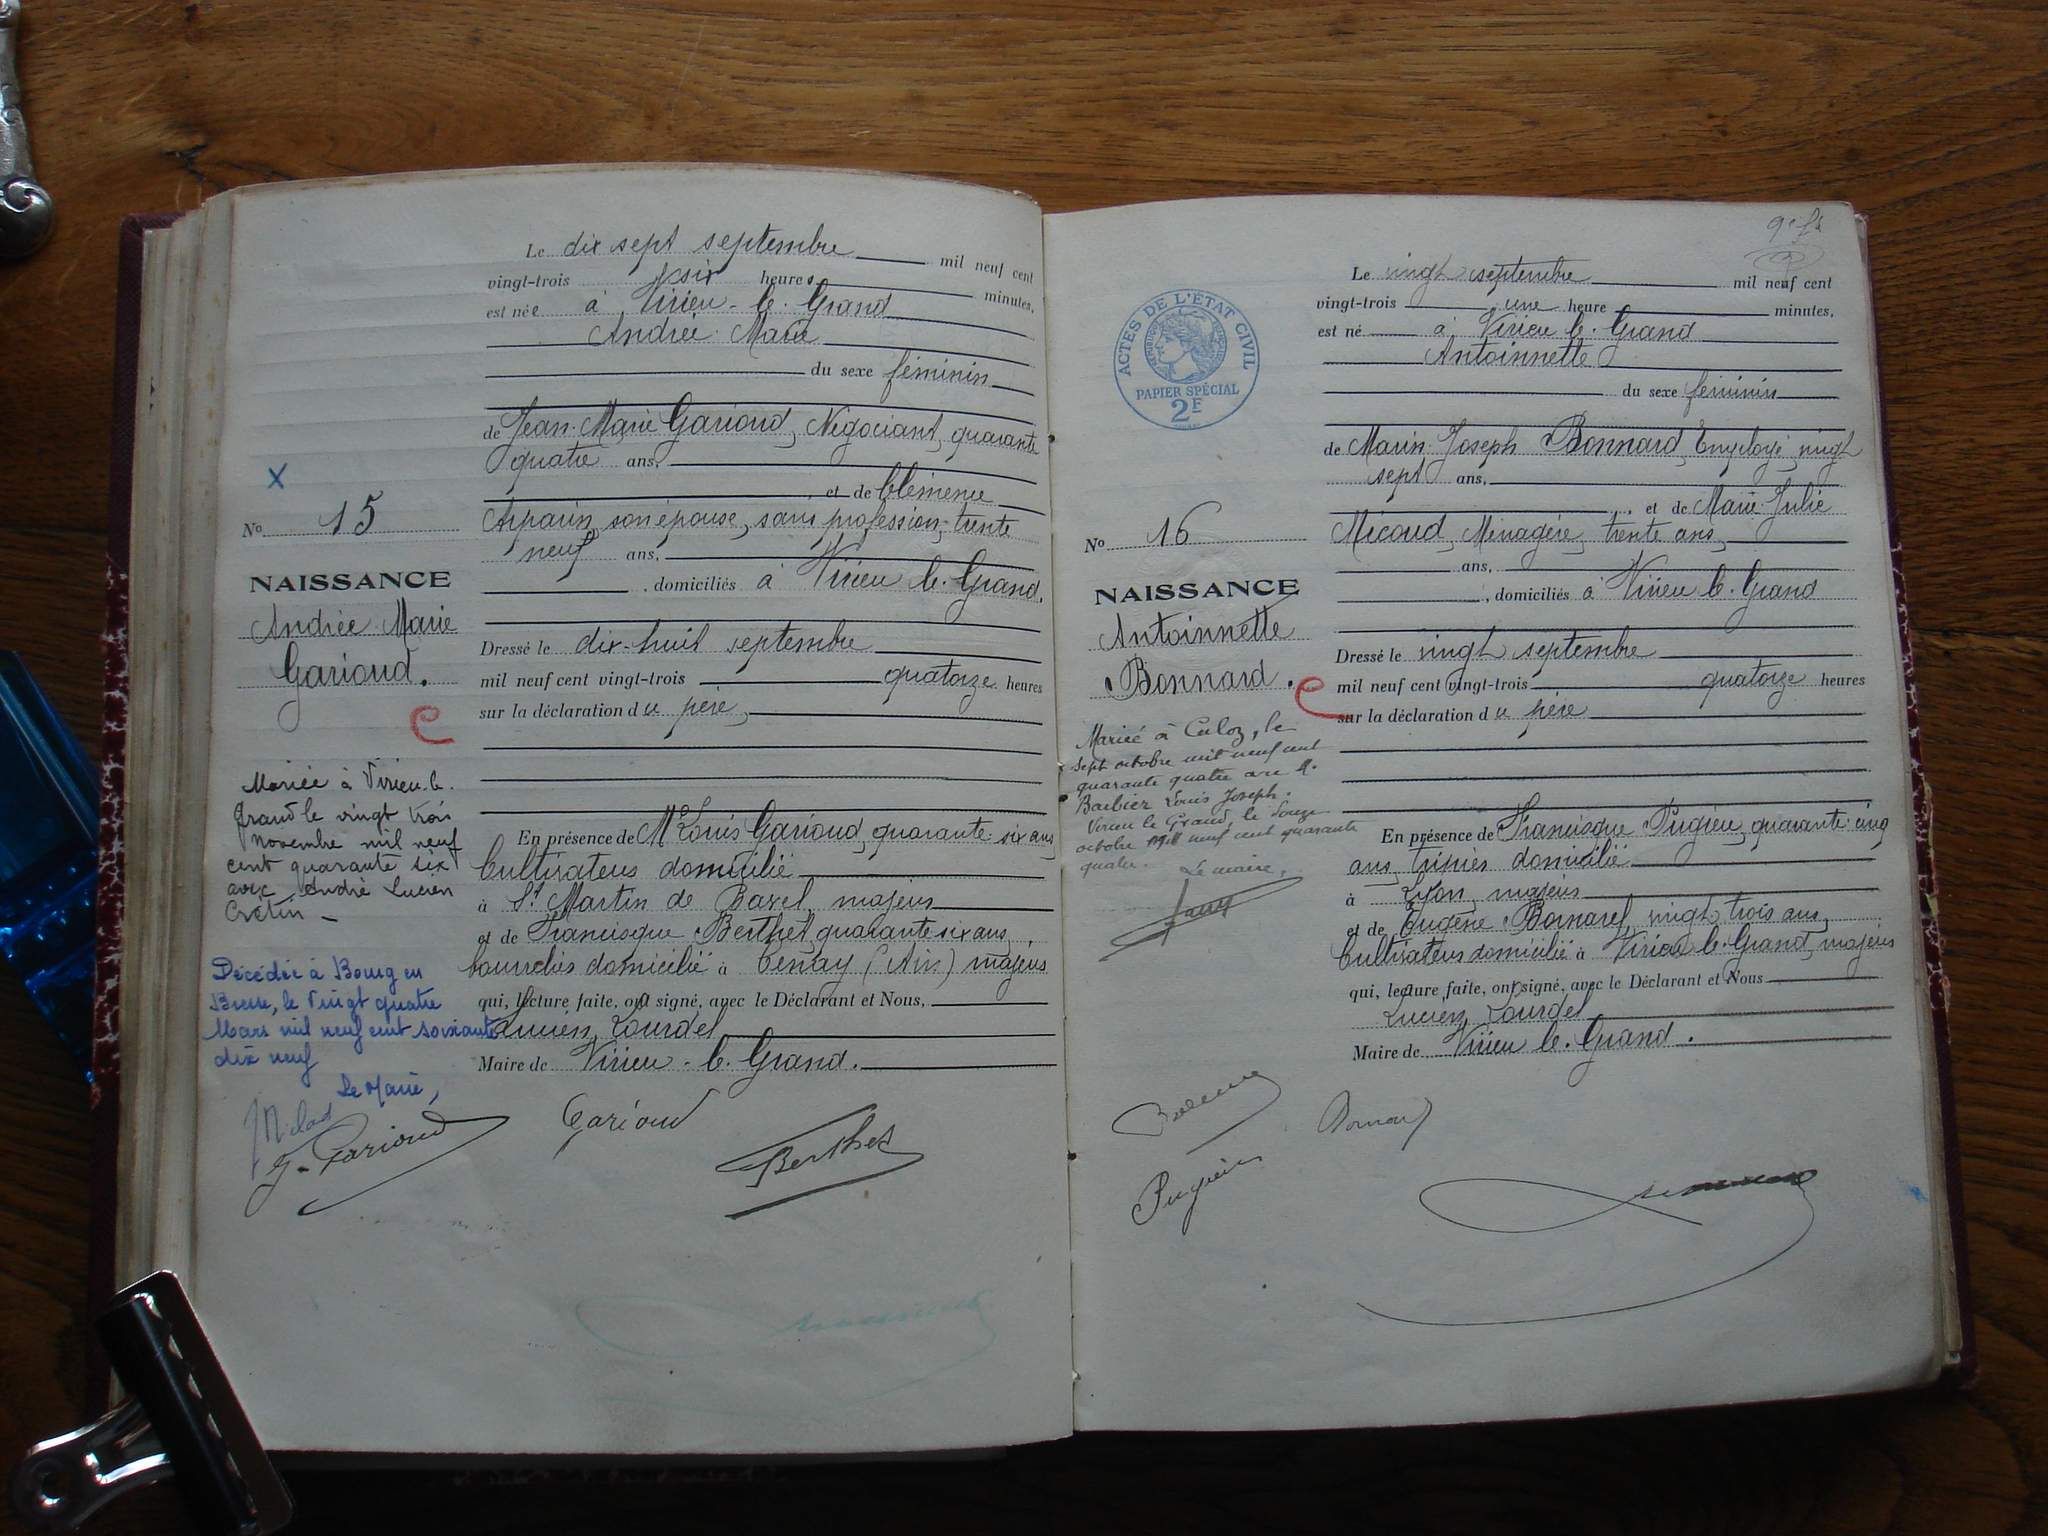 Le dix sept septembre mil neuf cent
vingt-trois six heures minutes,
est née à Virieu-le-Grand
Andrée Marie
du sexe féminin
de Jean-Marie Garioud, Négociant, quarante
quatre ans,
et de Clémence
Arparin, son épouse, sans profession, trente
neuf ans,
domiciliés à Virieu le-Grand.
Dressé le dix-huit septembre
mil neuf cent vingt-trois quatorze heures
sur la déclaration du père,
En présence de Mr Louis Garioud, quarante-six ans,
Cultivateur domicilié
à St Martin de Bavel, majeur
et de Francisque Berthet, quarante six ans,
boucher domicilié à Tenay (Ain) majeur
qui, lecture faite, ont signé, avec le Déclarant et Nous,
Lucien Lourdel
Maire de Virieu-le-Grand.
X
No 15
NAISSANCE
Andrée-Marie
Garioud.
Mariée à Virieu-le-
Grand le vingt trois
novembre mil neuf
cent quarante six
avec André Lucien
Crétin -
Décédée à Bourg en
Bresse, le Vingt quatre
Mars mil neuf cent soixante
dix neuf
Le Maire,
J. Garioud
Garioud
Berthet
ACTES DE L'ÉTAT CIVIL
PAPIER SPÉCIAL
2F
Le vingt septembre mil neuf cent
vingt-trois une heure minutes,
est né à Virieu le-Grand
Antoinnette
du sexe féminin
de Marin-Joseph Bonnard, Employé, vingt
sept ans,
et de Marie-Julie
Micoud, Ménagère, trente ans,
ans,
, domiciliés à Virieu le-Grand
Dressé le vingt septembre
mil neuf cent vingt-trois quatorze heures
sur la déclaration du père
En présence de Francisque Pugieu, quarante-cinq
ans, tripier domicilié
à Lyon, majeur
et de Eugène Bornarel, vingt trois ans,
Cultivateur domicilié à Virieu-le-Grand, majeur
qui, lecture faite, ont signé, avec le Déclarant et Nous
Lucien Lourdel
Maire de Virieu le-Grand.
No 16
NAISSANCE
Antoinnette
Bonnard.
Mariée à Culoz, le
sept octobre mil neuf cent
quarante quatre avec M.
Barbier Louis Joseph.
Virieu le Grand, le douze
octobre mil neuf cent quarante
quatre.
Le maire,
Pugieu